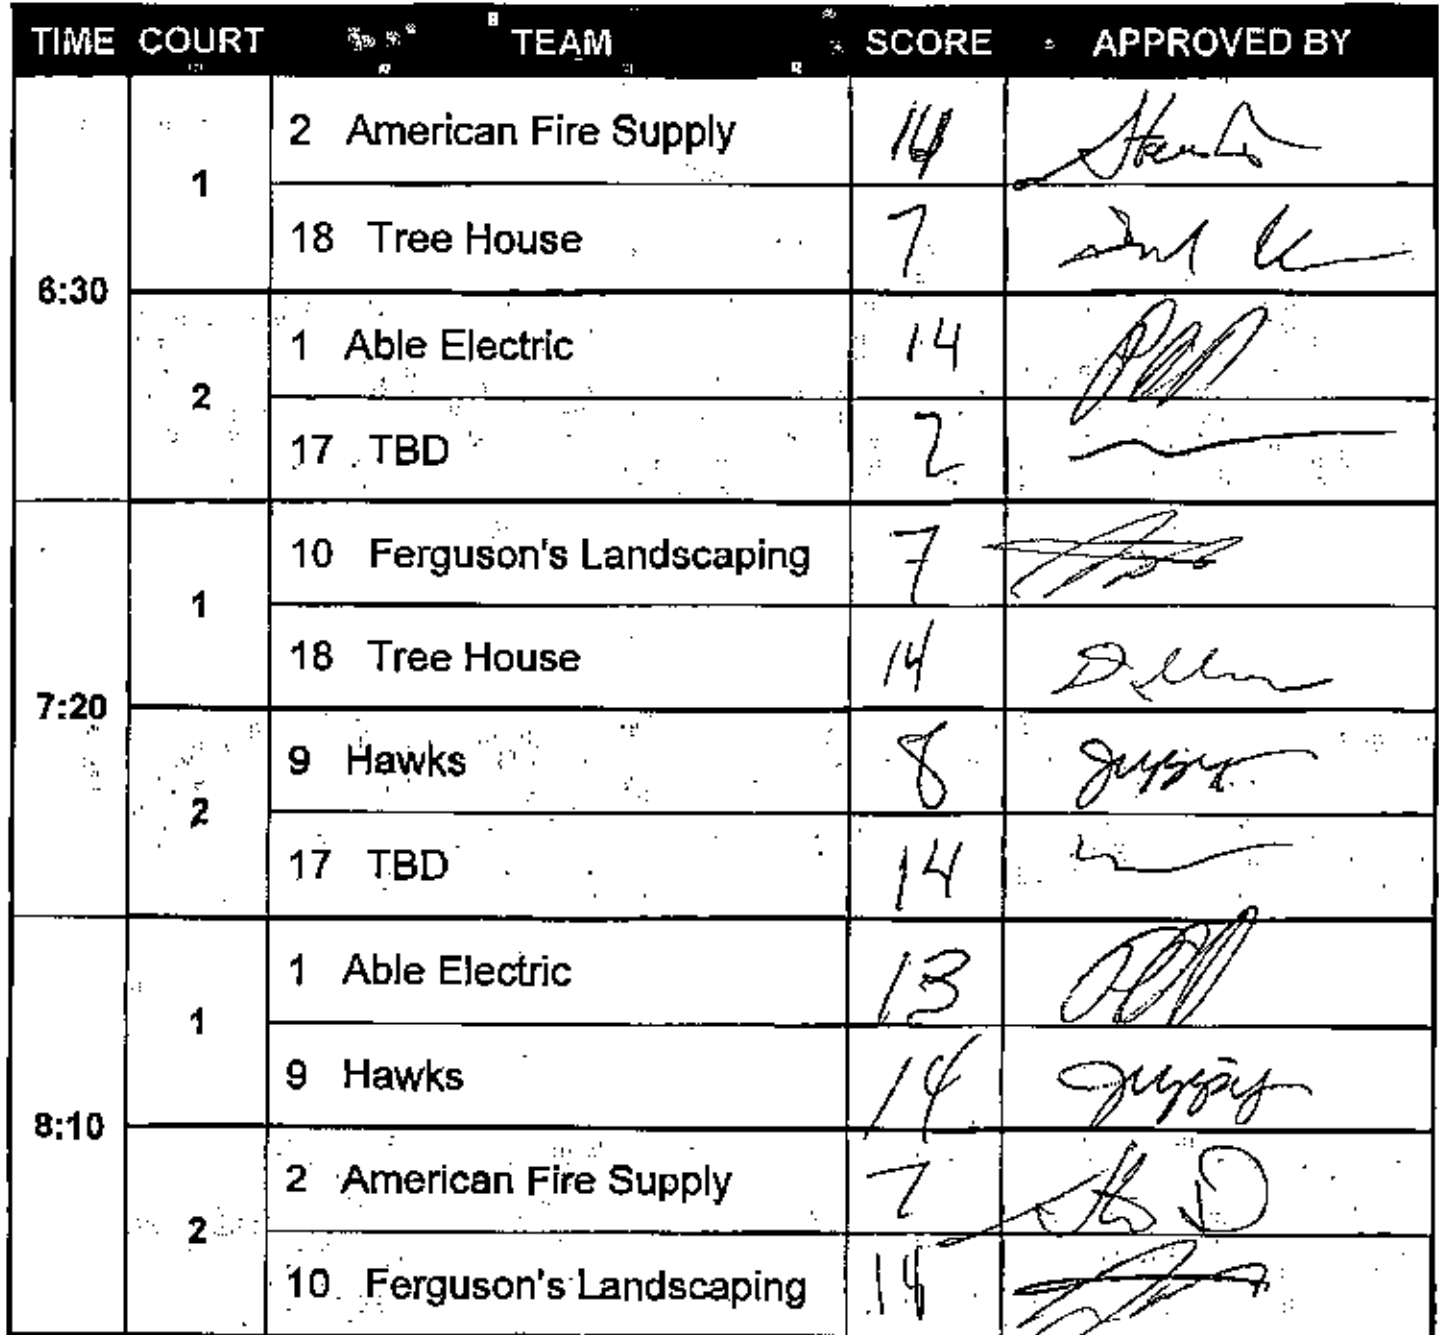 TIME COURT TEAM SCORE APPROVED BY
6:30
1
2 American Fire Supply 14
18 Tree House 7
2
1 Able Electric 14
17 TBD 2
7:20
1
10 Ferguson's Landscaping 7
18 Tree House 14
2
9 Hawks 8
17 TBD 14
8:10
1
1 Able Electric 13
9 Hawks 14
2
2 American Fire Supply 7
10 Ferguson's Landscaping 14